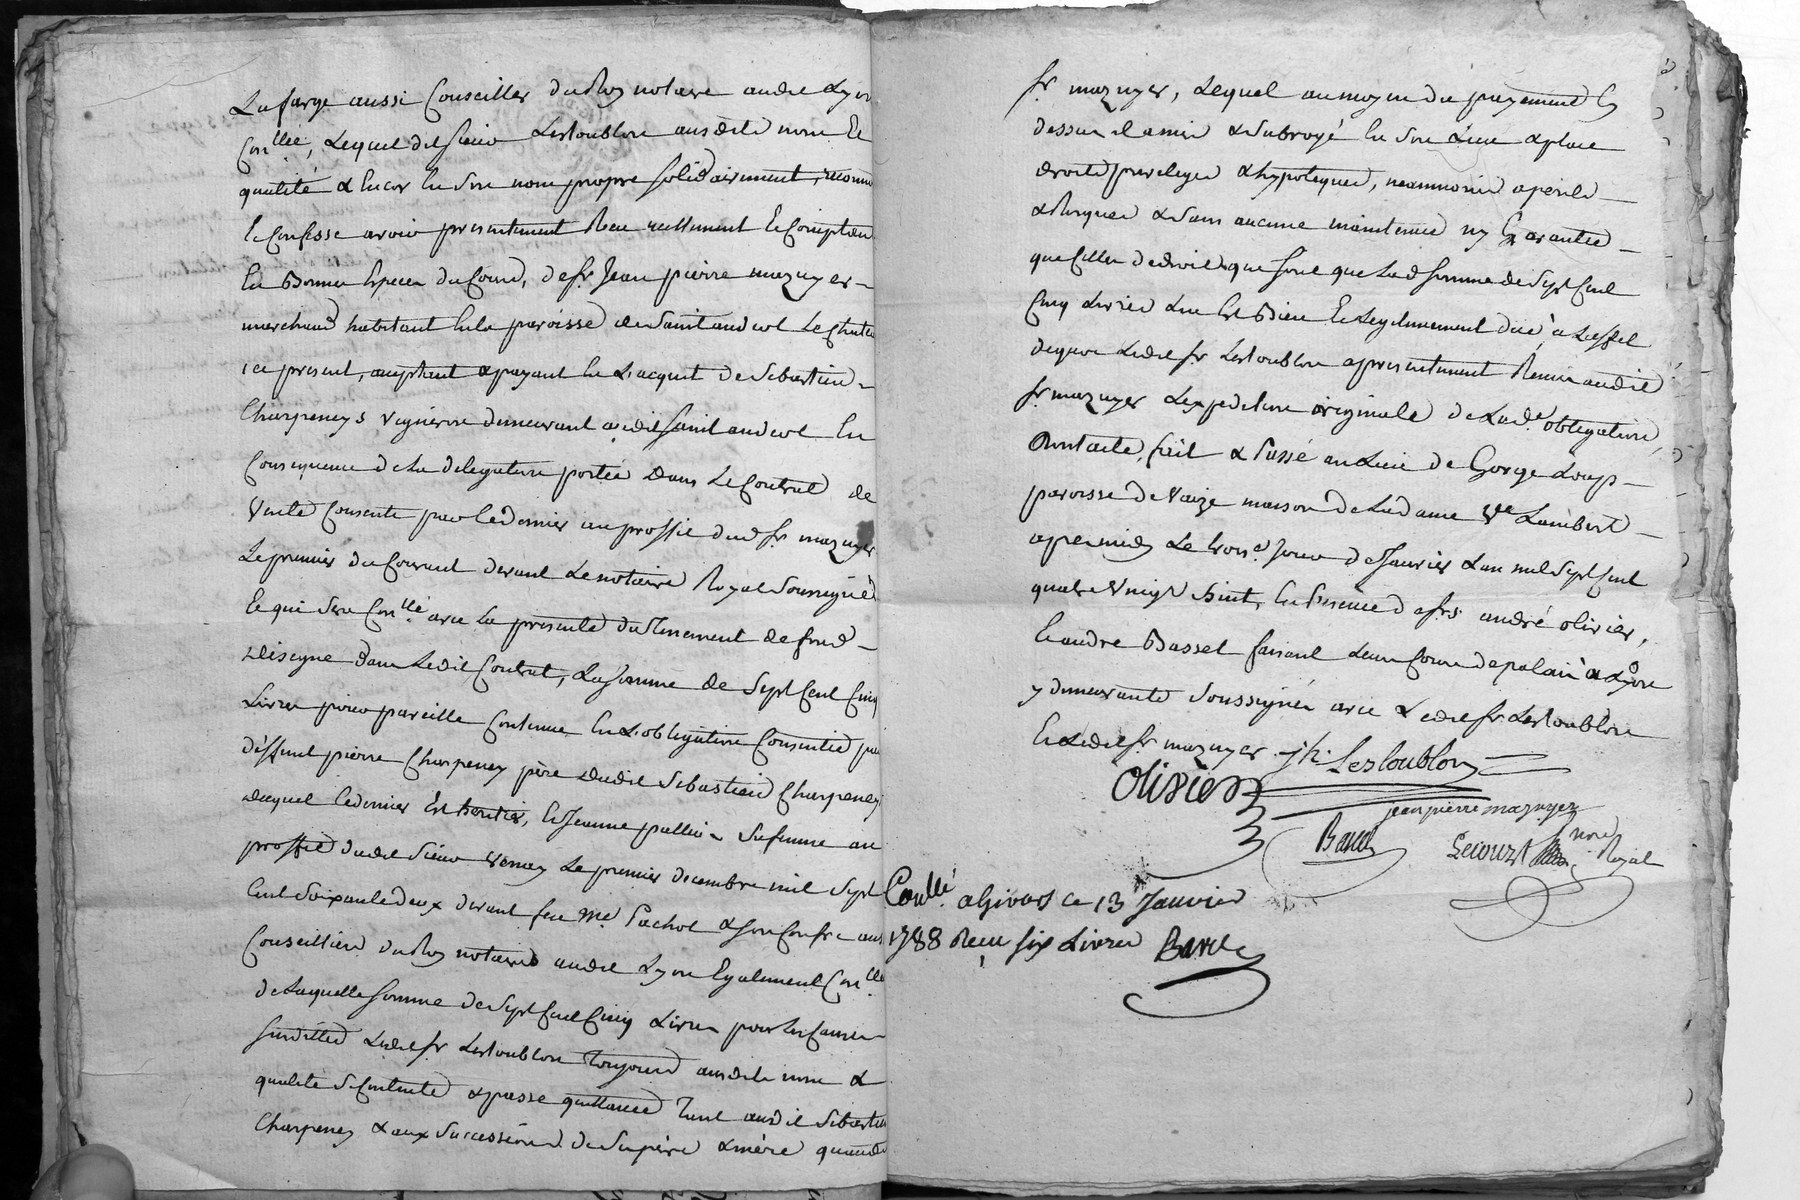 Lafarge aussi Conseiller du Roy notaire audit Lyon
Conllé, Lequel dit sieur Lestoublon ausdits nom Et
qualité & Encor En son nom propre solidairement, reconnu
Et Confesse avoir presentement Receu reellement Et Comptan
En Bonnes Especes du Cours, de sr Jean pierre mazuyer
marchand habitant En la paroisse de Saint andeol Le Chateau
ice present, acceptant & payant En L'acquit de Sebastien
Charpeneys vigneron demeurant audit saint andeol En
Consequence de La delegation portée Dans Le Contrat de
Vente Consentie par Ce dernier au proffit dud sr mazuyer
Le premier du Courant devant Le notaire Royal soussigné
Et qui sera Conllé avec La presente du Tenement de fond
designé dans Ledit Contrat, La somme de Sept Cent Cinq
Livres pour pareille Contenue En L'obligation Consentie par
deffunt pierre Charpeney père dudit Sebastien Charpeney
duquel Ce dernier Est heritier, Et Jeanne pallui Sa femme au
proffit dudit Sieur Venay Le premier decembre mil Sept
Cent Soixante deux devant feu Me Pachot & son Confre aus
Conseillers du Roy notaires audit Lyon Egalement Conllé
de Laquelle somme de Sept Cent Cinq Livres pour Les Causes
susdittes Ledit sr Lestoublon Toujours ausdits nom &
qualité Se Contente & passe quittance Tant audit Sebastien
Charpeney & aux Successions de Ses père & mère quaudit
sr mazuyer, Lequel au moyen du payement Cy
dessus il a mis & Subrogé En Son Lieu & place
droits privileges & hypoteques, neanmoins a perils
& Risques & Sans aucune maintenue ny Garantie
que Celles de droit que sont que Lad somme de Sept Cent
Cinq Livres Lui Est Bien Et Legitimement due, a L'effet
de quoi Ledit sr Lestoublon a presentement Remis audit
sr mazuyer L'expedition originale de Lade obligation,
Dont acte, fait & Passé au Lieu de Gorge Loup
paroisse de Vaize maison de La Dame Vve Lambert
apres midy Le trois.e Jour de Janvier L'an mil Sept Cent
quatre Vingt huit, En Presence de srs andré olivier,
Et andre Basset faisant Leur Cour de palais a Lyon
y demeurants Soussignés avec Ledit sr Lestoublon
Et Ledit sr mazuyer.
jh: Lestoublon
Olivier
jean pierre mazuyer
Basset
Lecourt
nore Royal
Conllé a Givors ce 13 Janvier
1788 Receu six Livres